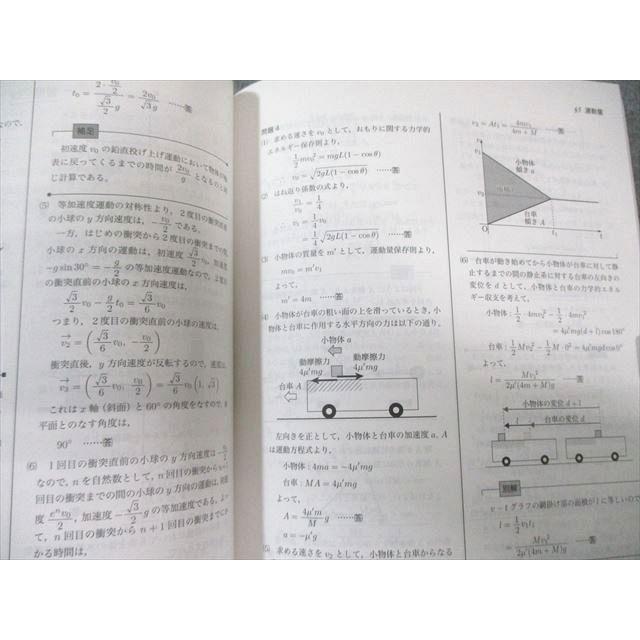 なので、
t₀ = (2・v₀/2)/(√3/2 g) = 2v₀/√3g ……答
補足
初速度 v₀ の鉛直投げ上げ運動において物体が地
表に戻ってくるまでの時間が 2v₀/g となるのと同
じ計算である。
(5) 等加速度運動の対称性より、2度目の衝突直前
の小球の y 方向速度は、-v₀/2 である。
一方、はじめの衝突から2度目の衝突までの間、
小球の x 方向の運動は、初速度 √3/2 v₀、加速度
-g sin30° = -g/2 の等加速度運動なので、2度目
の衝突直前の小球の x 方向速度は、
√3/2 v₀ - g/2 t₀ = √3/6 v₀
つまり、2度目の衝突直前の小球の速度は、
v₂ = (√3/6 v₀, -v₀/2)
衝突直後、y 方向速度が反転するので、速度は、
v₂ = (√3/6 v₀, v₀/2) = √3/6 v₀ (1, √3)
これは x 軸(斜面)と 60° の角度をなすので、水
平面とのなす角度は、
90° ……答
(6) 1回目の衝突直前の小球の y 方向速度は -v₀/2
なので、n を自然数として、n 回目の衝突から n+1
回目の衝突までの間の小球の y 方向の運動は、初速
度 eⁿv₀/2、加速度 -√3/2 g の等加速度である。よっ
て、n 回目の衝突から n+1 回目の衝突までにか
かる時間は、
問題4
(1) 求める速さを v₀ として、おもりに関する力学的
エネルギー保存則より、
1/2 mv₀² = mgL(1-cosθ)
v₀ = √2gL(1-cosθ) ……答
(2) はね返り係数の式より、
v₁/v₀ = 1/4
v₁ = 1/4 v₀
= 1/4 √2gL(1-cosθ) ……答
(3) 小物体の質量を m' として、運動量保存則より、
mv₀ = m'v₁
よって、
m' = 4m ……答
(4) 小物体が台車の粗い面の上を滑っているとき、小
物体と台車に作用する水平方向の力は以下の通り。
小物体 a
動摩擦力 動摩擦力
4μ'mg 4μ'mg
台車 A
左向きを正として、小物体と台車の加速度 a, A
は運動方程式より、
小物体 : 4ma = -4μ'mg
台車 : MA = 4μ'mg
よって、
A = 4μ'm/M g ……答
a = -μ'g
(5) 求める速さを v₂ として、小物体と台車からなる
§5 運動量
v₂ = At₁ = 4mv₁/(4m+M) ……答
v
v₁
小物体
傾き a
v₂
台車
傾き A
O
t₁
t
(6) 台車が動き始めてから小物体が台車に対して静
止するまでの間の静止系に対する台車の左向きの
変位を d として、小物体と台車の力学的エネル
ギー収支を考えて、
小物体 : 1/2・4mv₂² - 1/2・4mv₁²
= 4μ'mg(d+l)cos180°
台車 : 1/2 Mv₂² - 1/2 M・0² = 4μ'mgd cos0°
よって、
l = Mv₁²/2μ'(4m+M)g ……答
小物体の変位 d+l
l 台車の変位 d
別解
v-t グラフの網掛け部の面積が l に等しいので
l = 1/2 v₁t₁
= Mv₁²/2μ'(4m+M)g ……答